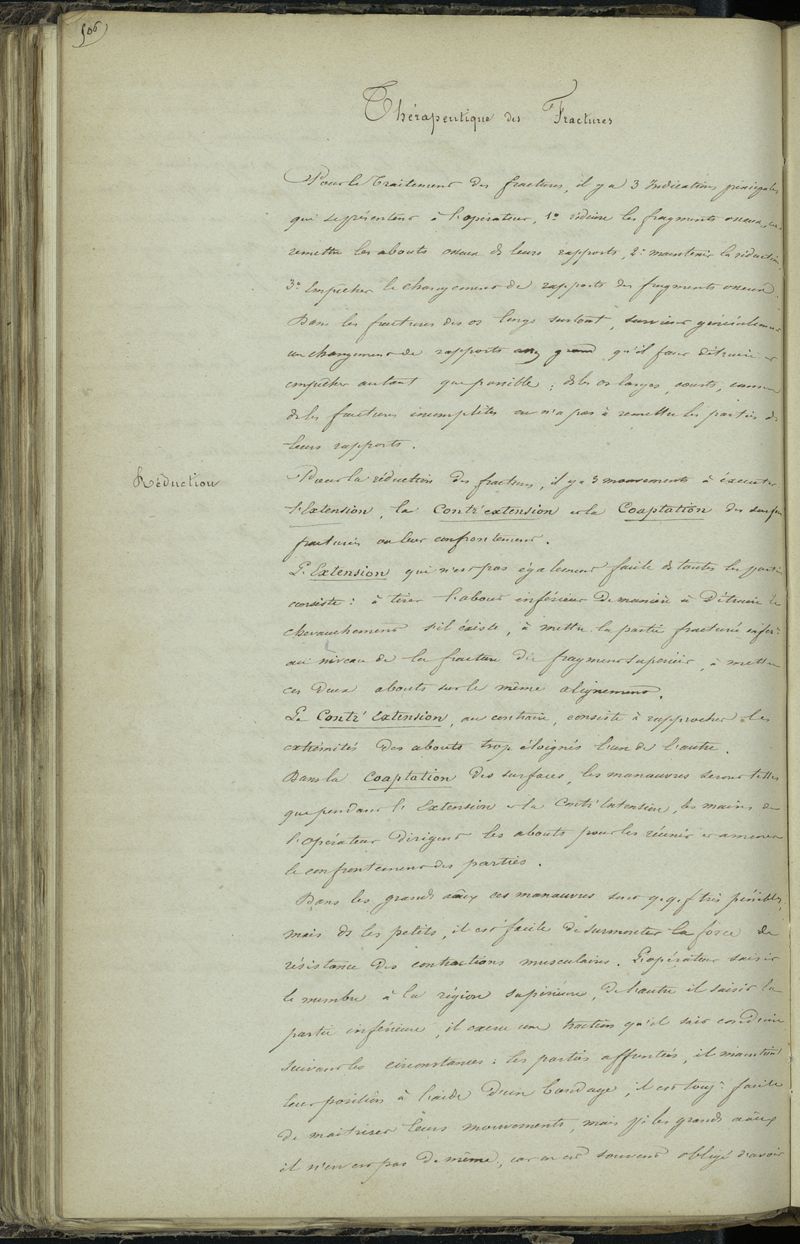 506
Thérapeutique des Fractures
Pour le Traitement des fractures, il y a 3 Indications principales
qui se présentent à l'opérateur, 1º réduire les fragments osseux, ou
remettre les abouts osseux ds leurs rapports, 2º maintenir la réduction
3º Empêcher le changement de rapports des fragments osseux.
Dans les fractures des os longs surtout, survient généralement
un changement de rapports assez grand qu'il faut détruire et
empêcher autant que possible ; ds les os larges, courts, comme
ds les fractures incomplètes on n'a pas à remettre les parties ds
leurs rapports.
Réduction
Pour la réduction des fractures, il y a 3 mouvements à éxecuter
l'Extension, la Contr'extension et la Coaptation des surfaces
fracturées ou leur confrontement.
L'Extension qui n'est pas également facile ds toutes les parties
consiste : à tirer l'about inférieur de manière à détruire le
chevauchement s'il éxiste, à mettre la partie fracturée inférre
au niveau de la fracture du fragment supérieur, à mettre
ces deux abouts sur le même alignement.
La Contr'Extension, au contraire, consiste à rapprocher les
extrémités des abouts trop éloignés l'un de l'autre.
Dans la Coaptation des surfaces, les manœuvres seront telles
que pendant l'Extension et la Contr'Extension, les mains de
l'opérateur dirigent les abouts pour les réunir et amener
le confrontement des parties.
Dans les grands aäux ces manœuvres sont q.q.f très pénibles,
mais ds les petits, il est facile de surmonter la force de
résistance des contractions musculaires. L'opérateur saisit
le membre à la région supérieure, de l'autre il saisit la
partie inférieure, il exerce une traction qu'il sait conduire
suivant les circonstances : les parties affrontées, il maintient
leur position à l'aide d'un bandage, il est touj: facile
de maitriser leurs mouvements, mais pr les grands aäux
il n'en est pas de même, car on est souvent obligé d'avoir